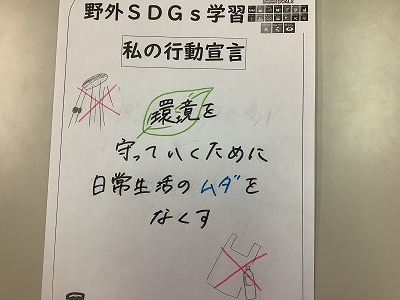 野外ＳＤＧｓ学習
私の行動宣言
環境を
守っていくために
日常生活のムダを
なくす